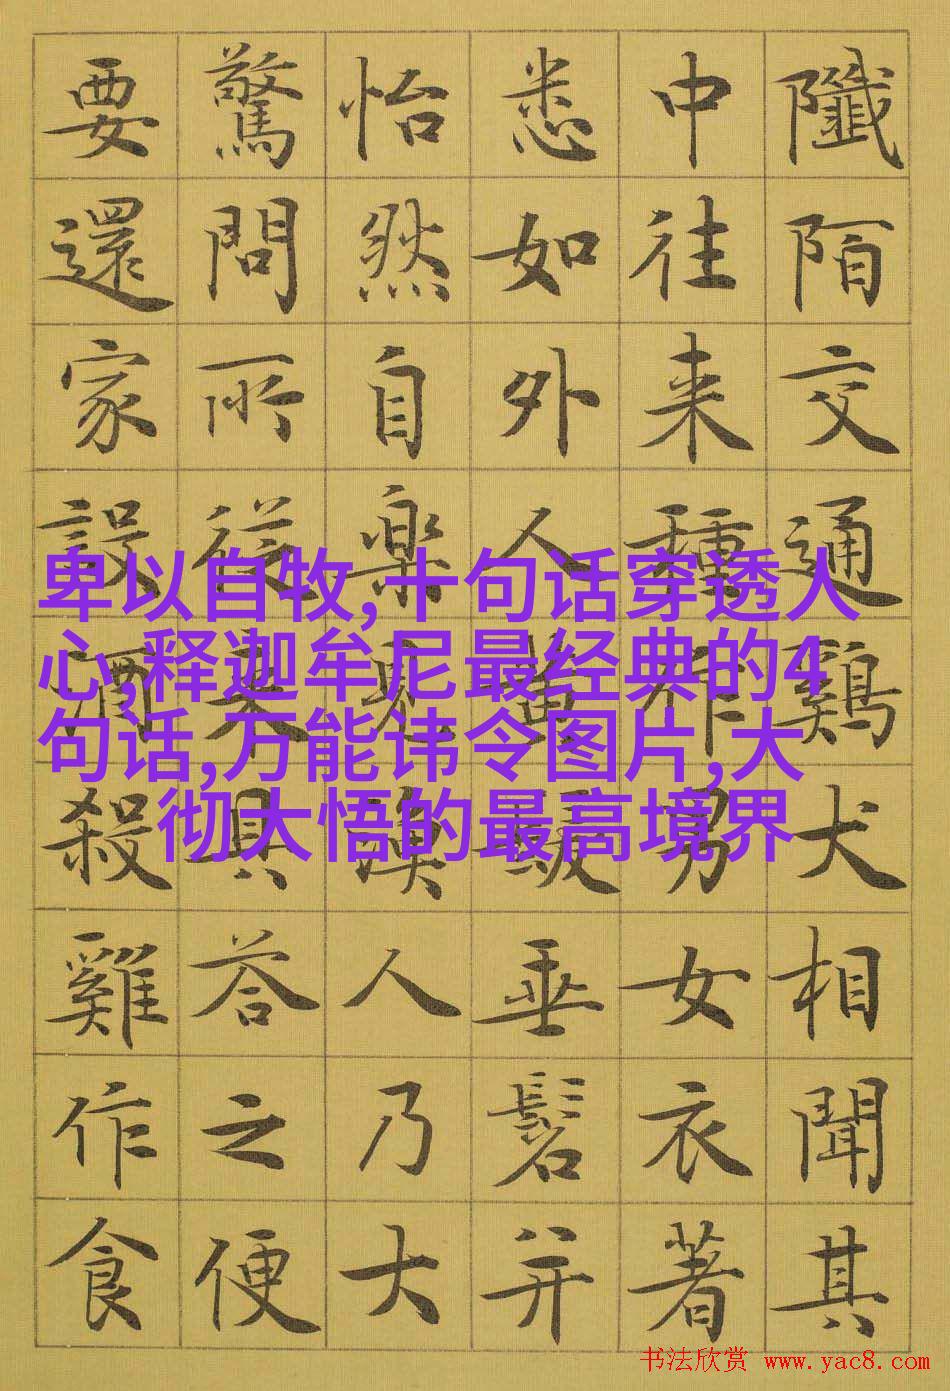 陌交通鷄犬相聞其
中往来種作男女衣著
悉如外人黄髮垂髫并
怡然自楽見漁人乃大
驚問所従来具答之便
要還家設酒殺雞作食
卑以自牧,十句话穿透人
心,释迦牟尼最经典的4
句话,万能讳令图片,大
彻大悟的最高境界
书法欣赏 www.yac8.com